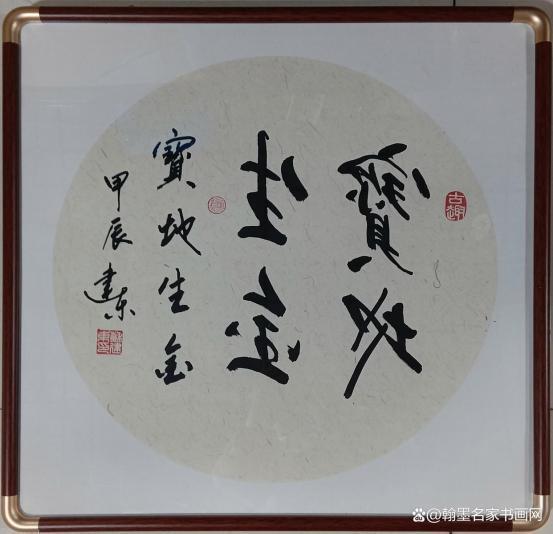 古趣
寶地
生金
寶地生金
甲辰 建东
@翰墨名家书画网